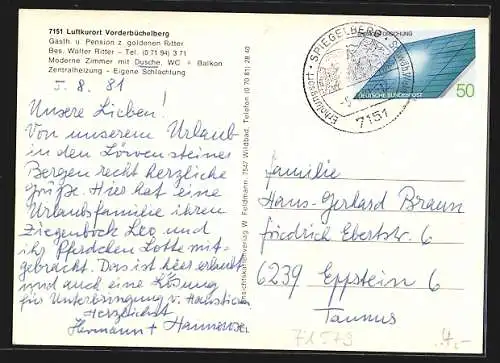 7151 Luftkurort Vorderbüchelberg
Gästh. u. Pension z. goldenen Ritter
Bes. Walter Ritter - Tel. (0 71 94) 3 71
Moderne Zimmer mit Dusche, WC + Balkon
Zentralheizung - Eigene Schlachtung
5.8.81
Unsere Lieben!
Von unserem Urlaub
in den Löwensteiner
Bergen recht herzliche
Grüße. Hier hat eine
Urlaubsfamilie ihren
Ziegenbock Leo und
ihr Pferdchen Lotte mit-
gebracht. Das ist hier erlaubt
und auch eine Lösung
für Unterbringung v. Haustieren
Herzlichst
Hermann + Hannerose
Ansichtskartenverlag W. Feldmann, 7547 Wildbad, Telefon (0 70 81) 28 40
Erholungsort · SPIEGELBERG · Schwäb.
7151
FORSCHUNG
DEUTSCHE BUNDESPOST
50
Familie
Hans-Gerhard Braun
Friedrich Ebertstr. 6
6239 Eppstein 6
Taunus
71579
4,-